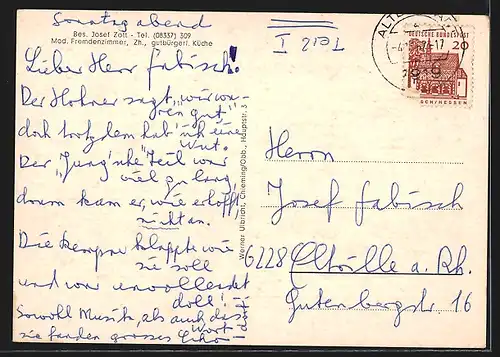 Sonntagabend
Bes. Josef Zott - Tel. (08337) 309
Mod. Fremdenzimmer, Zh., gutbürgerl. Küche
Lieber Herr Fabisch!
Der Hohner sagt, "wir wa-
ren gut"
doch trotzdem hab' ich eine
Wut.
Der "Jung'sche" Teil war
viel zu lang,
drum kam er, wie erhofft,
nicht an.
Die klappte wie
sie soll
und war unvollendet
doll!
Sowohl Musik, als auch das
Wort -
sie fanden grosses Echo
Teil I
Werner Ulbricht, Chieming/Obb., Hauptstr. 3
ALTE
DEUTSCHE BUNDESPOST
20
LORSCH/HESSEN
Herrn
Josef Fabisch
6228 Eltville a. Rh.
Gutenbergstr. 16